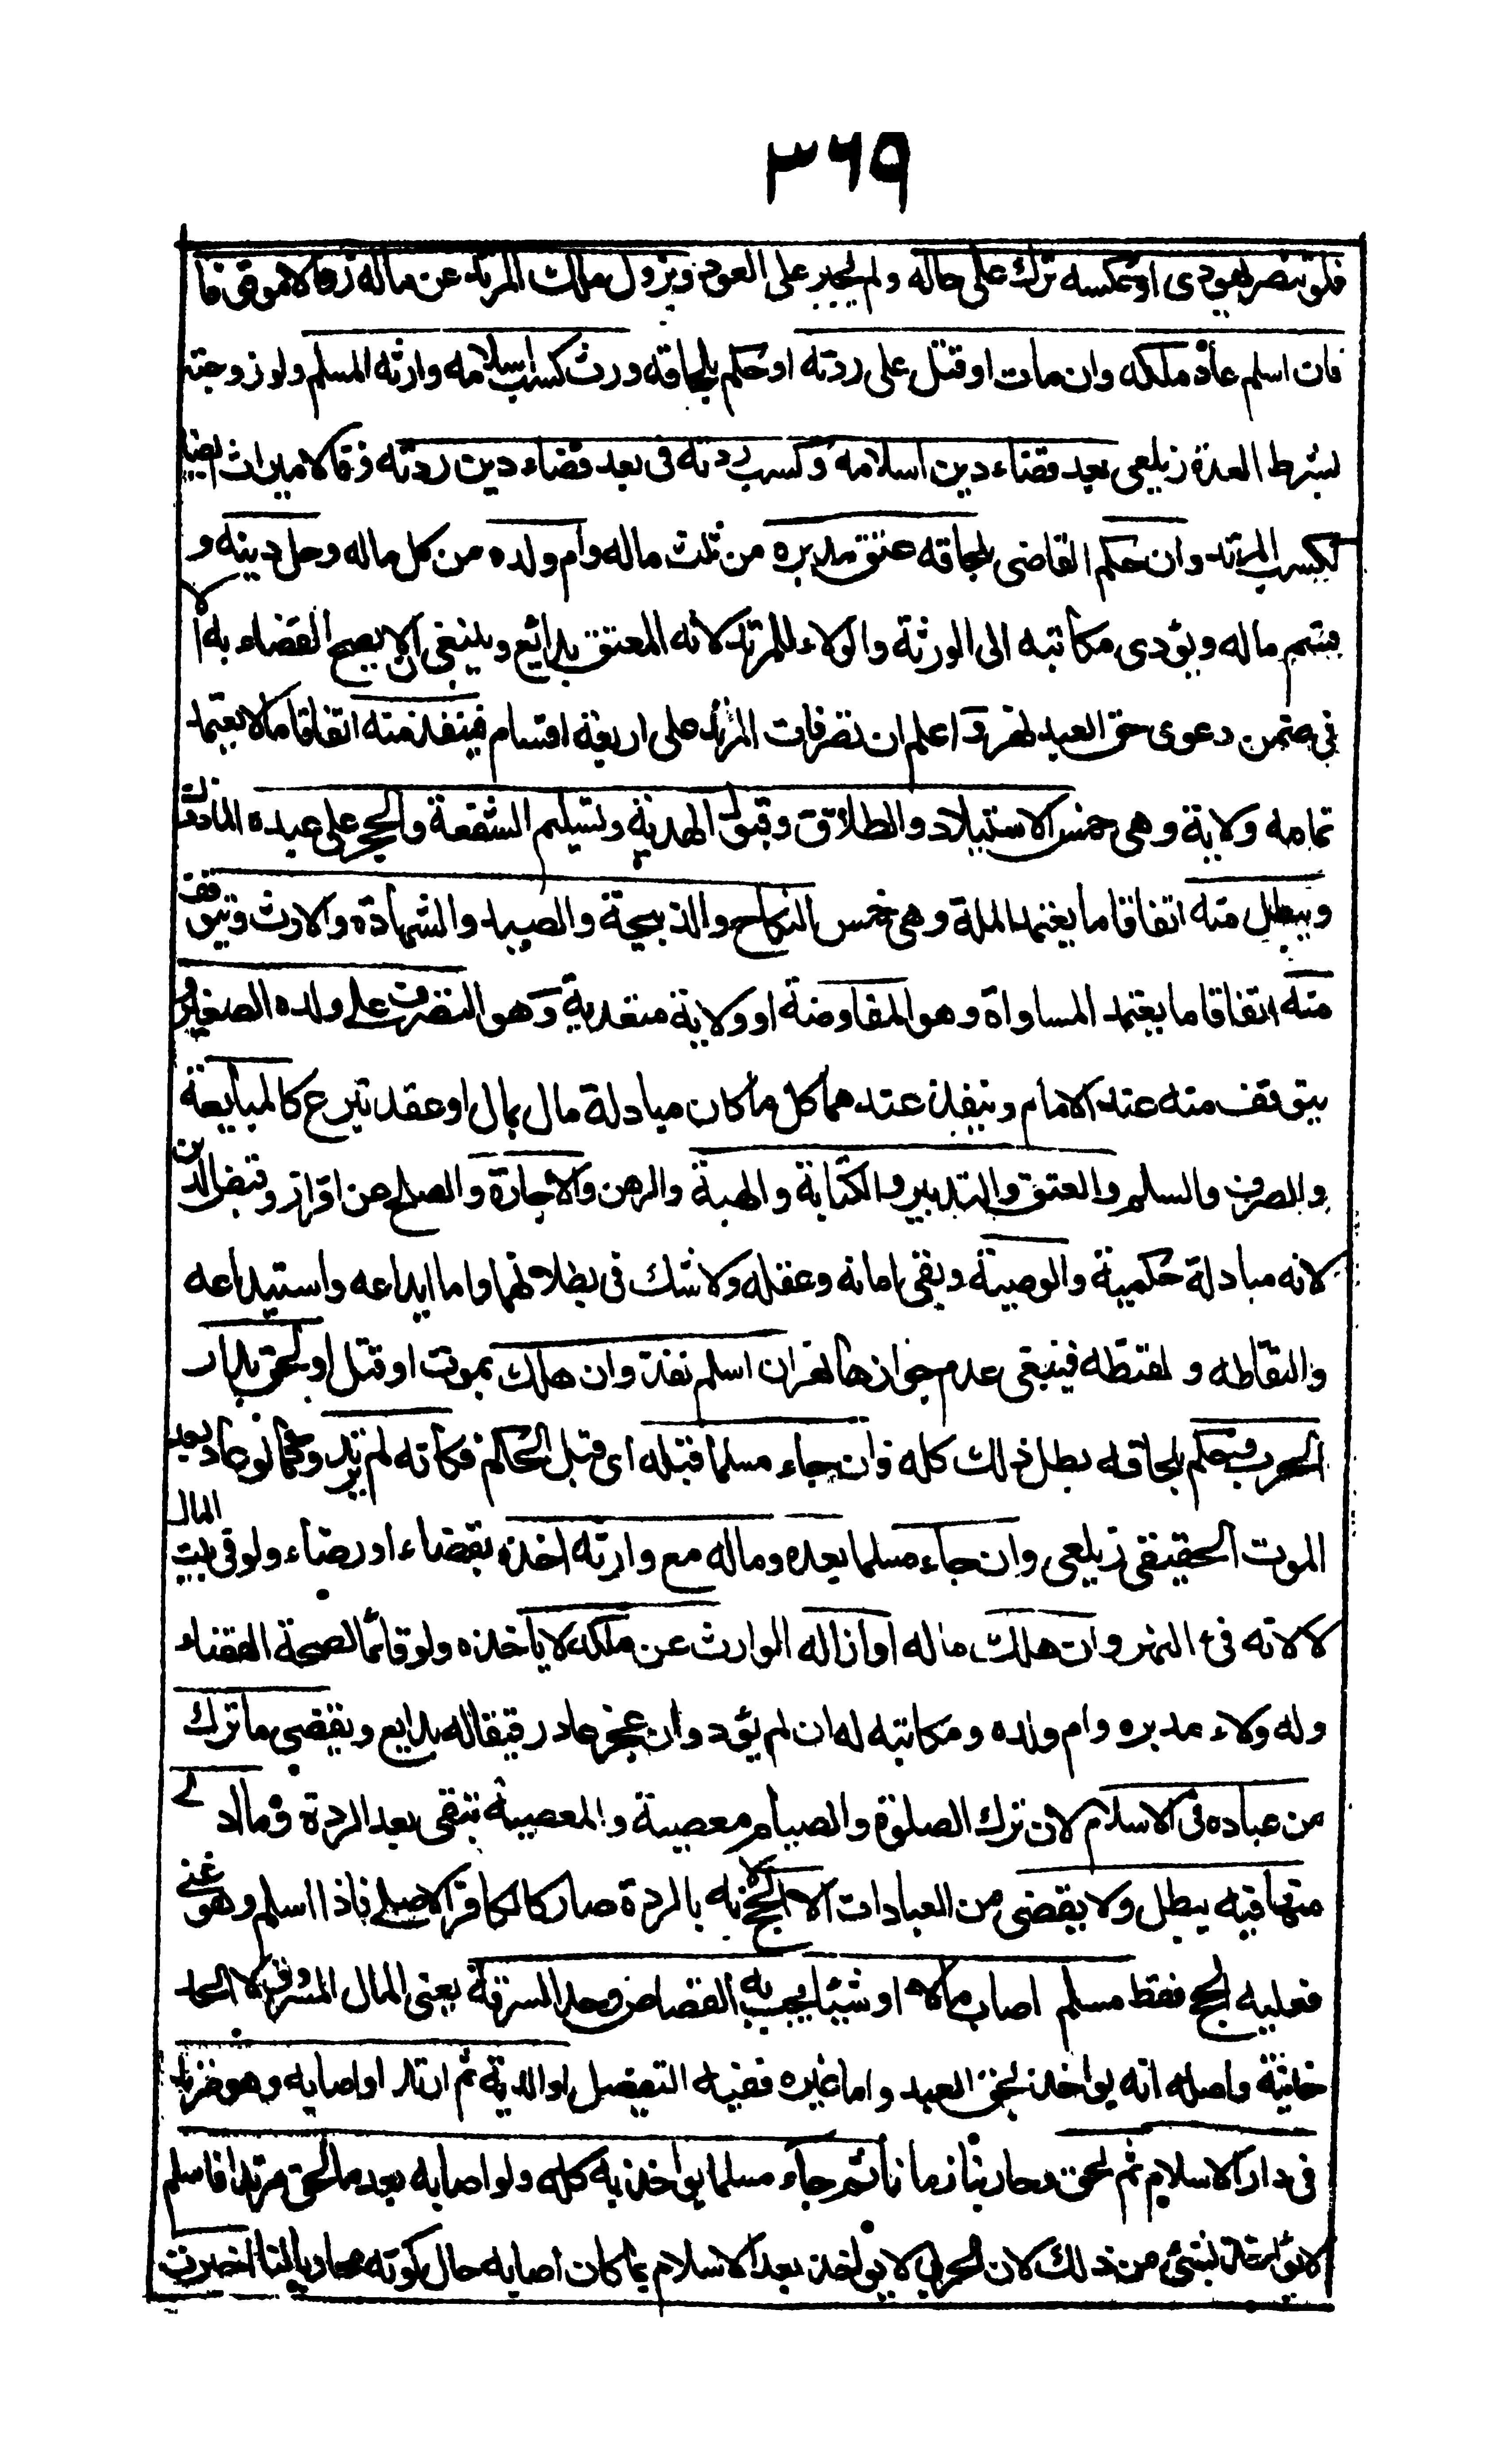 ٣٦٩
فلو تنصر يهودى او عكسه ترك على حاله ولم يجبر على العود ويزول ملك المرتد عن ماله زوالا موقوفا
فان اسلم عاد ملكه وان مات او قتل على ردته او حكم بلحاقه ورث كسب اسلامه وارثه المسلم ولو زوجته
بشرط العدة زيلعى بعد قضاء دين اسلامه وكسب ردته فى بعد قضاء دين ردته وقالا ميراث ايضا
لكسب المرتد وان حكم القاضى بلحاقه عتق مدبره من ثلث ماله وام ولده من كل ماله وحل دينه و
قسم ماله ويؤدى مكاتبه الى الورثة والولاء للمرتد لانه المعتق بدائع وينبغى ان لا يصح القضاء به الا
فى ضمن دعوى حق العبد نهر و اعلم ان تصرفات المرتد على اربعة اقسام فينفذ منه اتفاقا ما لا يعتمد
تمام ولاية وهى خمس الاستيلاد والطلاق وقبول الهدية وتسليم الشفعة والحجر على عبده الماذون
ويبطل منه اتفاقا ما يعتمد الملة وهى خمس النكاح والذبيحة والصيد والشهادة والارث ويتوقف
منه اتفاقا ما يعتمد المساواة وهو المفاوضة او ولاية متعدية وهو التصرف على ولده الصغير و
يتوقف منه عند الامام وينفذ عندهما كل ما كان مبادلة مال بمال او عقد تبرع كالمبايعة
والصرف والسلم والعتق والتدبير والكتابة والهبة والرهن والاجارة والصلح عن اقرار وقبض الدين
لانه مبادلة حكمية والوصية وبقى امانه وعقله ولا شك فى بطلانهما واما ايداعه واستيداعه
والتقاطه ولقطته فينبغى عدم جوازها نهر ان اسلم نفذ وان هلك بموت او قتل او لحق بدار
الحرب وحكم بلحاقه بطل ذلك كله فان جاء مسلما قبله اى قبل الحكم فكانه لم يرتد وكما لو عاد بعد
الموت الحقيقى زيلعى وان جاء مسلما بعده وماله مع وارثه اخذه بقضاء او رضاء ولو فى بيت المال
لا لانه فىء النهر وان هلك ماله او ازاله الوارث عن ملكه لا ياخذه ولو قائما لصحة القضاء
وله ولاء مدبره وام ولده ومكاتبه له ان لم يؤد وان عجز عاد رقيقا له بدايع ويقضى ما ترك
من عباده فى الاسلام لان ترك الصلوة والصيام معصية والمعصية تبقى بعد الردة وما ادى
منها فيه يبطل ولا يقضى من العبادات الا الحج لانه بالردة صار كالكافر الاصلى فاذا اسلم وهو غنى
فعليه الحج فقط مسلم اصاب مالا او شيئا يجب به القصاص وحد السرقة يعنى المال المسروق لا الحد
خانية واصله انه يواخذ بحق العبد واما غيره ففيه التفصيل او الدية ثم ارتد او اصابه وهو مرتد
فى دار الاسلام ثم لحق وحاربنا زمانا ثم جاء مسلما يواخذ به كله ولو اصابه بعد ما لحق مرتدا فاسلم
لا يؤاخذ بشئ من ذلك لان الحربى لا يواخذ بعد الاسلام بما كان اصابه حال كونه محاربا لنا اخبرت